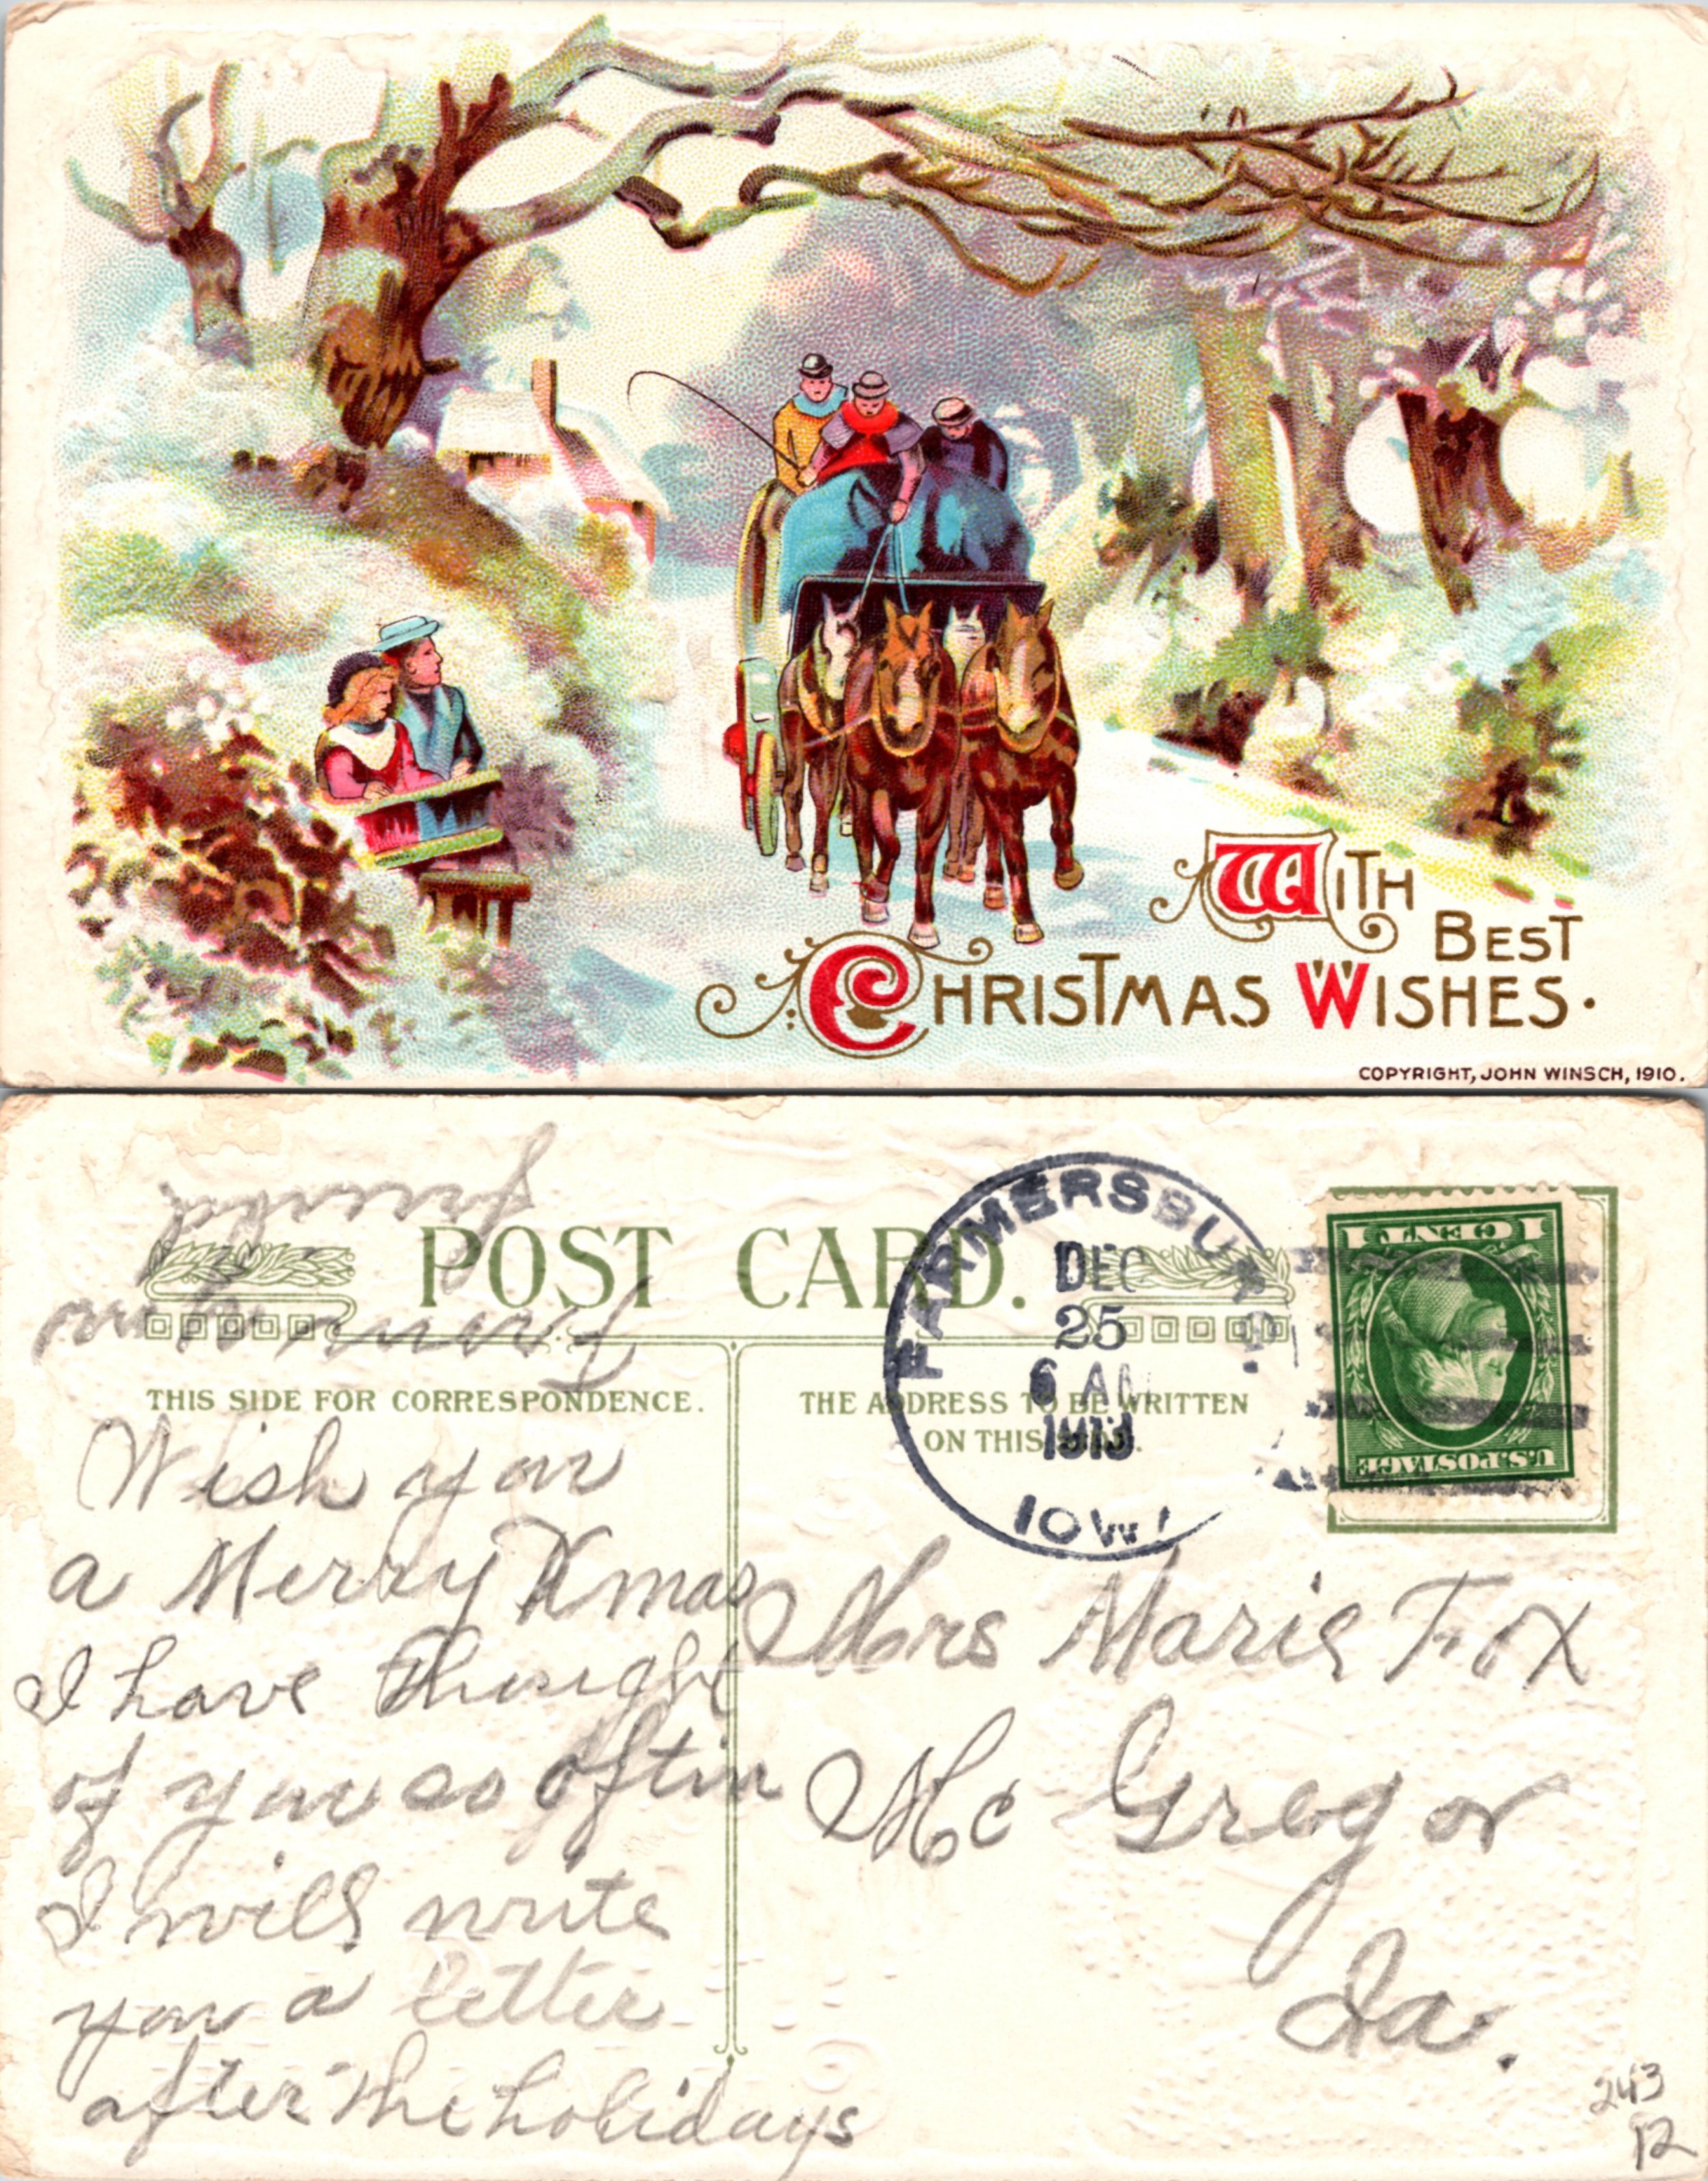 WITH
BEST
CHRISTMAS WISHES.
COPYRIGHT, JOHN WINSCH, 1910.
POST CARD.
THIS SIDE FOR CORRESPONDENCE.
THE ADDRESS TO BE WRITTEN
ON THIS SIDE.
FARMERSBU
DEC
25
6 AM
IOW
1 CENT 1
U.S. POSTAGE
Wish you
a Merry Xmas
I have thought
of you so oftin
I will write
you a letter
after the holidays
From your
friend
Mrs Marie Fox
Mc Gregor
Ia.
243
12